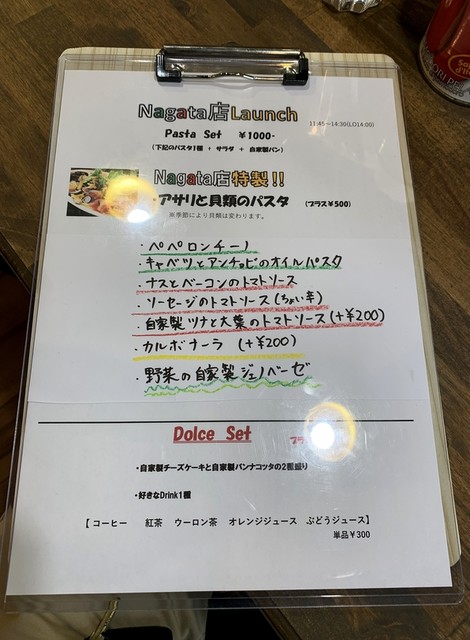 Nagata店Launch
11:45～14:30(LO14:00)
Pasta Set ¥1000-
(下記のパスタ1種 + サラダ + 自家製パン)
Nagata店特製!!
・アサリと貝類のパスタ (プラス¥500)
※季節により貝類は変わります。
・ペペロンチーノ
・キャベツとアンチョビのオイルパスタ
・ナスとベーコンのトマトソース
・ソーセージのトマトソース(ちょい辛)
・自家製ツナと大葉のトマトソース(+¥200)
・カルボナーラ (+¥200)
・野菜の自家製ジェノベーゼ
Dolce Set
・自家製チーズケーキと自家製パンナコッタの2種盛り
・好きなDrink1種
【コーヒー 紅茶 ウーロン茶 オレンジジュース ぶどうジュース】
単品¥300